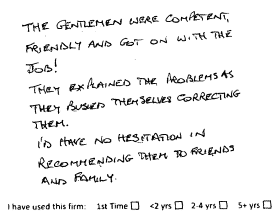 THE GENTLEMEN WERE COMPETENT,
FRIENDLY AND GOT ON WITH THE
JOB!
THEY EXPLAINED THE PROBLEMS AS
THEY BUSIED THEMSELVES CORRECTING
THEM.
I'D HAVE NO HESITATION IN
RECOMMENDING THEM TO FRIENDS
AND FAMILY.
I have used this firm: 1st Time <2 yrs 2-4 yrs 5+ yrs